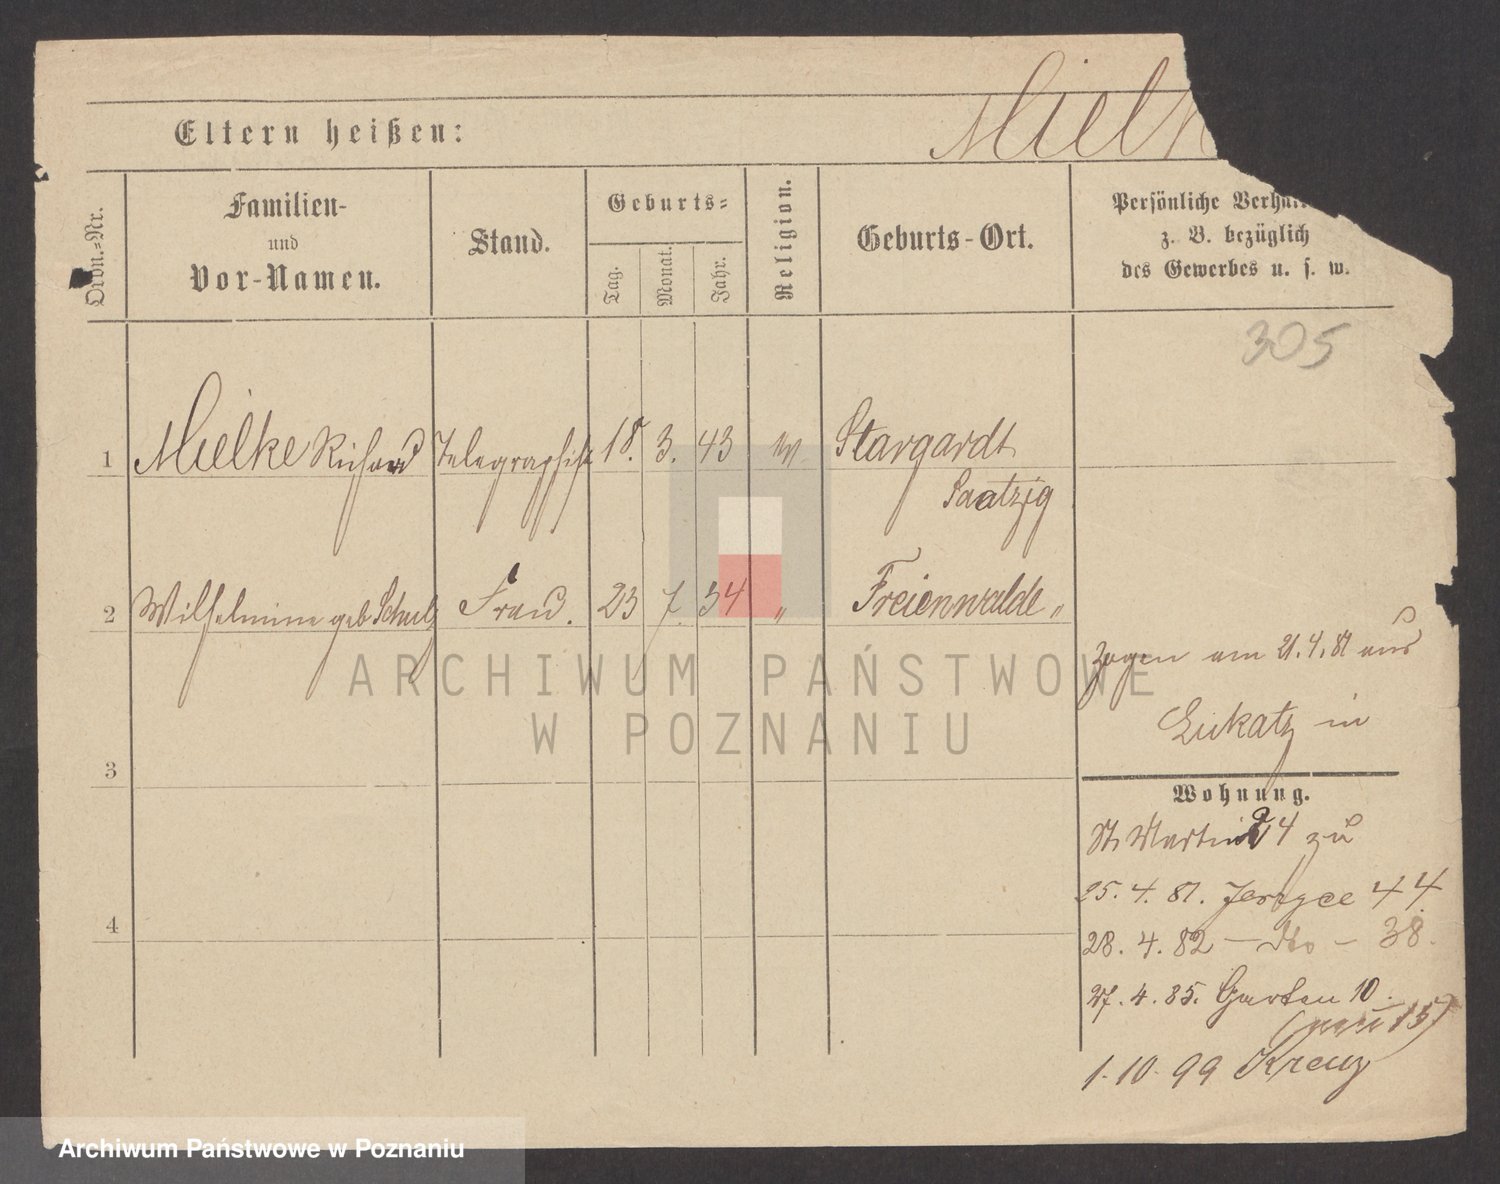 Miel
Eltern heißen:
Ordn.-Nr.
Familien-
und
Vor-Namen.
Stand.
Geburts-
Tag.
Monat.
Jahr.
Religion.
Geburts-Ort.
Persönliche Verhält
z. B. bezüglich
des Gewerbes u. s. w.
305
1 Mielke Richard Telegraphist 18. 3. 43 ev Stargardt
Saatzig
2 Wilhelmine geb Schulz Frau. 23 7. 54 " Freienwalde "
zogen am 21.4.81 aus
Lukatz in
3
Wohnung.
St Martin 4 zu
25. 4. 81. Jerzyce 44.
4
28. 4. 82 — dto — 38.
27. 4. 85. Garten 10.
(neu 15)
1. 10. 99 Kreuz
ARCHIWUM PAŃSTWOWE
W POZNANIU
Archiwum Państwowe w Poznaniu